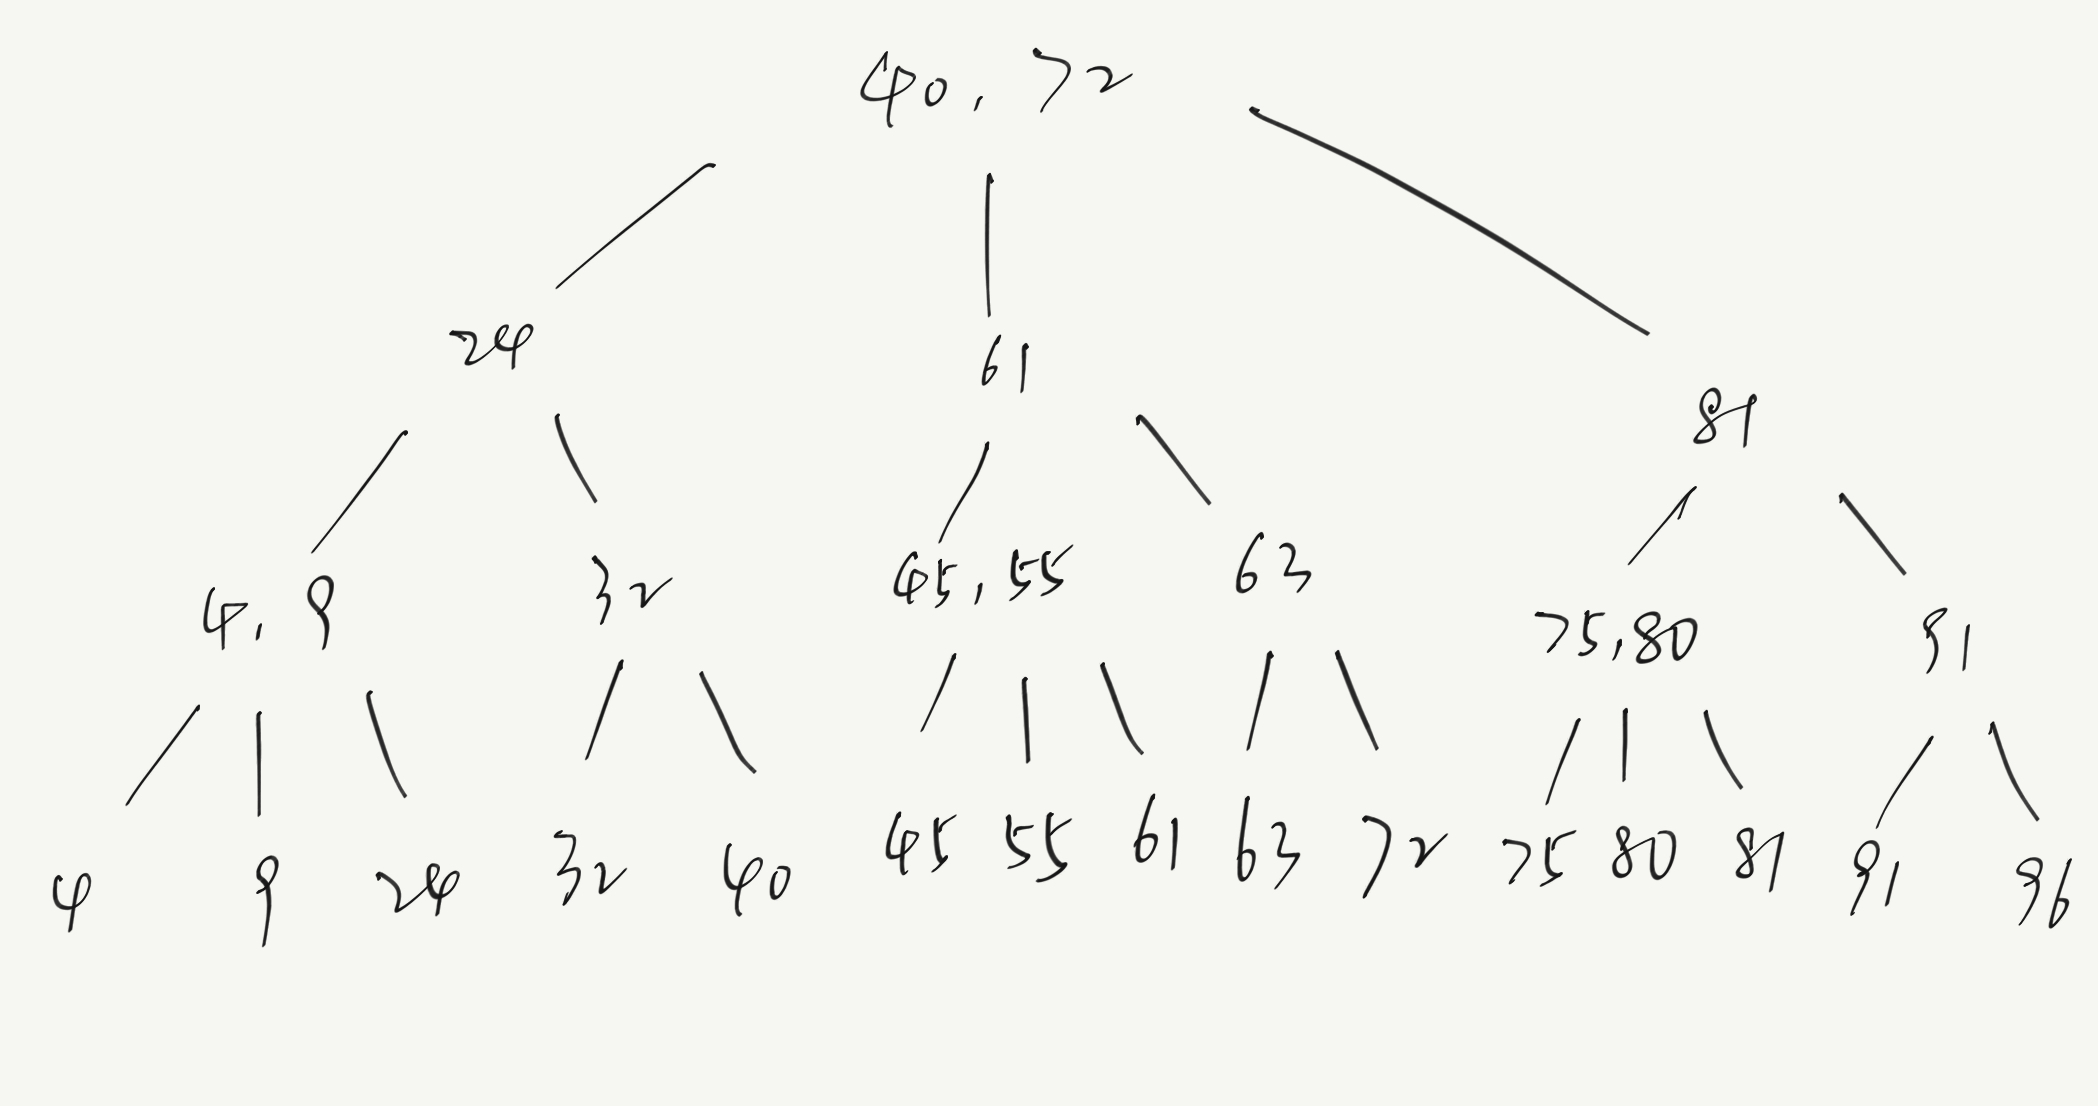 40, 72
24 61 81
4, 9 32 45, 55 63 75, 80 91
4 9 24 32 40 45 55 61 63 72 75 80 81 91 96